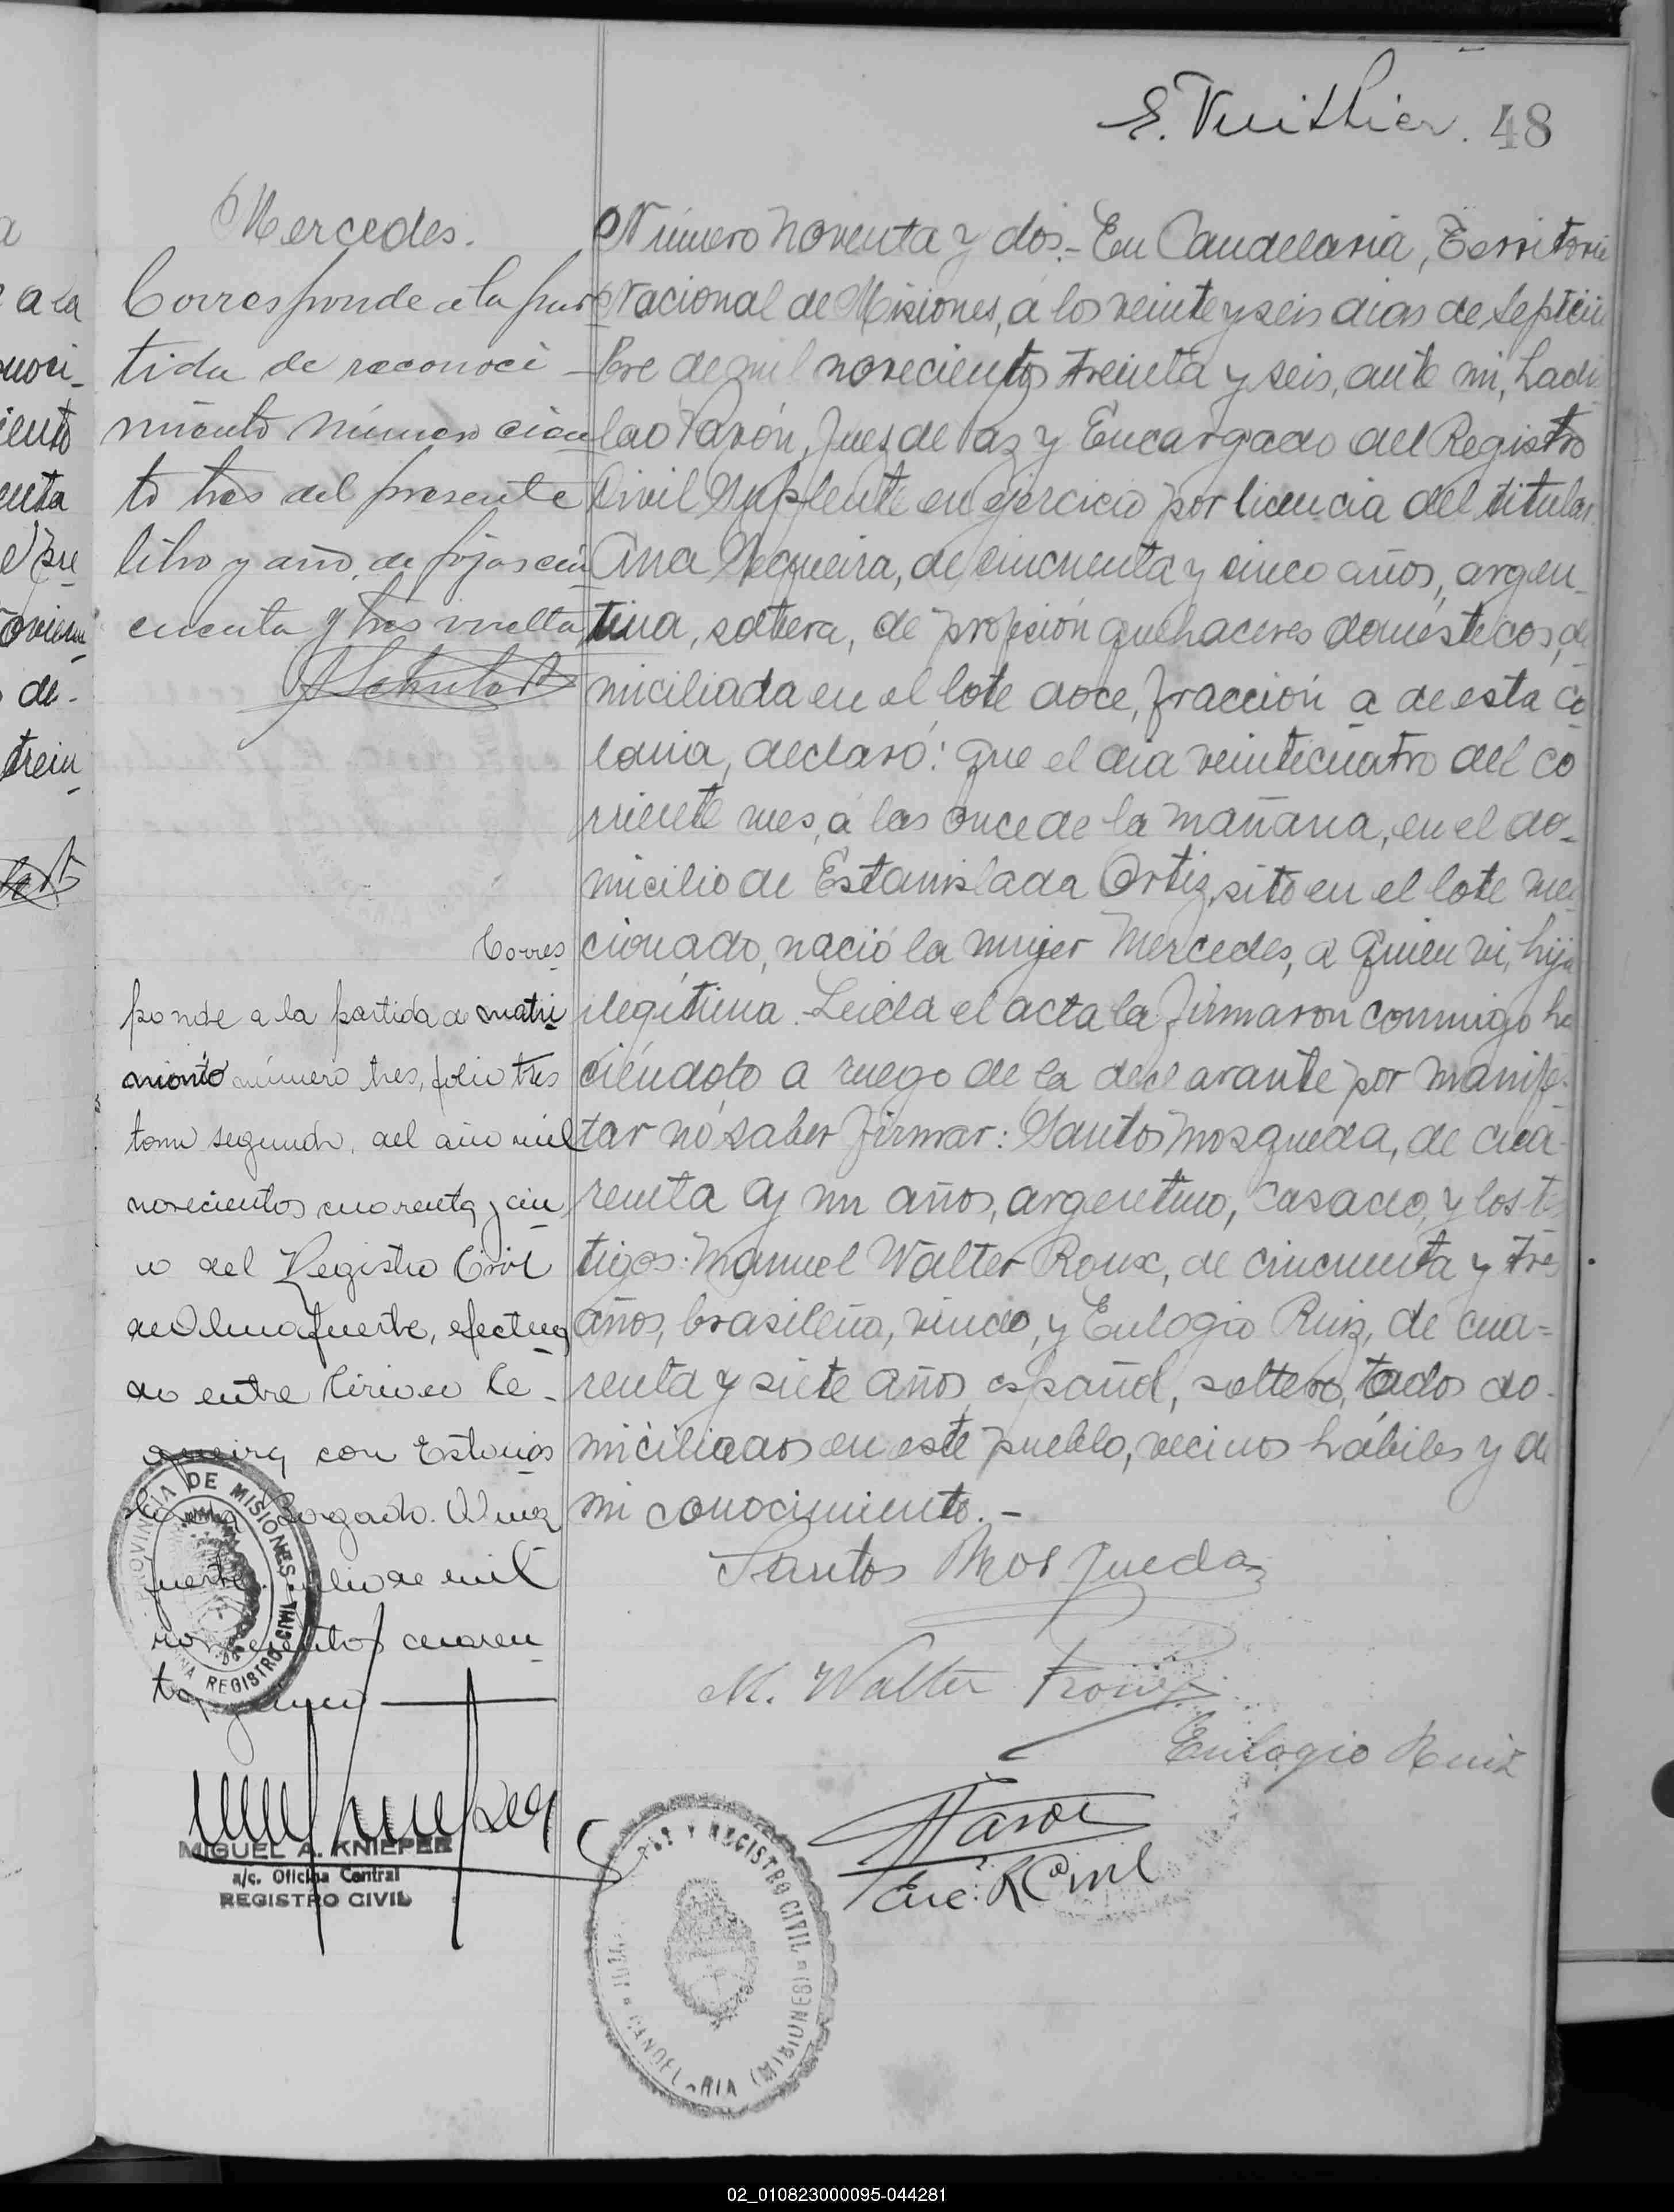 E. Vuithier. 48
Mercedes.
Corresponde a la par-
tida de reconoci-
miento número cien-
to tres del presente
libro y año, de fojas cin-
cuenta y tres vuelta
Número noventa y dos.- En Candelaria, Territorio
Nacional de Misiones, a los veinte y seis dias de Septiem
bre de mil novecientos treinta y seis, ante mi, Ladis
lao Pavón, Juez de Paz y Encargado del Registro
Civil Suplente en ejercicio por licencia del titular
Ana Sequeira, de cincuenta y cinco años, argen-
tina, soltera, de profesión quehaceres domésticos, do
miciliada en el lote doce, fracción a de esta Co
lonia, declaró: que el dia veinticuatro del co
rriente mes, a las once de la mañana, en el do-
micilio de Estanislada Ortiz, sito en el lote men
cionado, nació la mujer Mercedes, a quien vi, hija
ilegítima. Leida el acta la firmaron conmigo ha
ciéndolo a ruego de la declarante por manifes-
tar no saber firmar: Santos Mosqueda, de cua-
renta y un años, argentino, casado, y los tes
tigos: Manuel Walter Roux, de cincuenta y tres
años, brasileño, viudo, y Eulogio Ruiz, de cua=
renta y siete años, español, soltero, todos do-
miciliados en este pueblo, vecinos hábiles y de
mi conocimiento.-
Corres-
ponde a la partida de matri-
monio número tres, folio tres
tomo segundo, del año mil
novecientos cuarenta y cin-
co del Registro Civil
de Almafuerte, efectua-
do entre Cirineo Se-
queira con Estanis-
Bogado. Alma
fuerte, julio de mil
novecientos cuaren-
ta y cinco
Santos Mosqueda
M. Walter Roux
Eulogio Ruiz
Pavón
Enc. R. Civil
PROVINCIA DE MISIONES
REGISTRO CIVIL
MIGUEL A. KNIEPER
a/c. Oficina Central
REGISTRO CIVIL
Y REGISTRO CIVIL
CANDELARIA (MISIONES)
a
e a la
onoci-
iento
enta
el pre
ovien-
de-
trein-
02_010823000095-044281